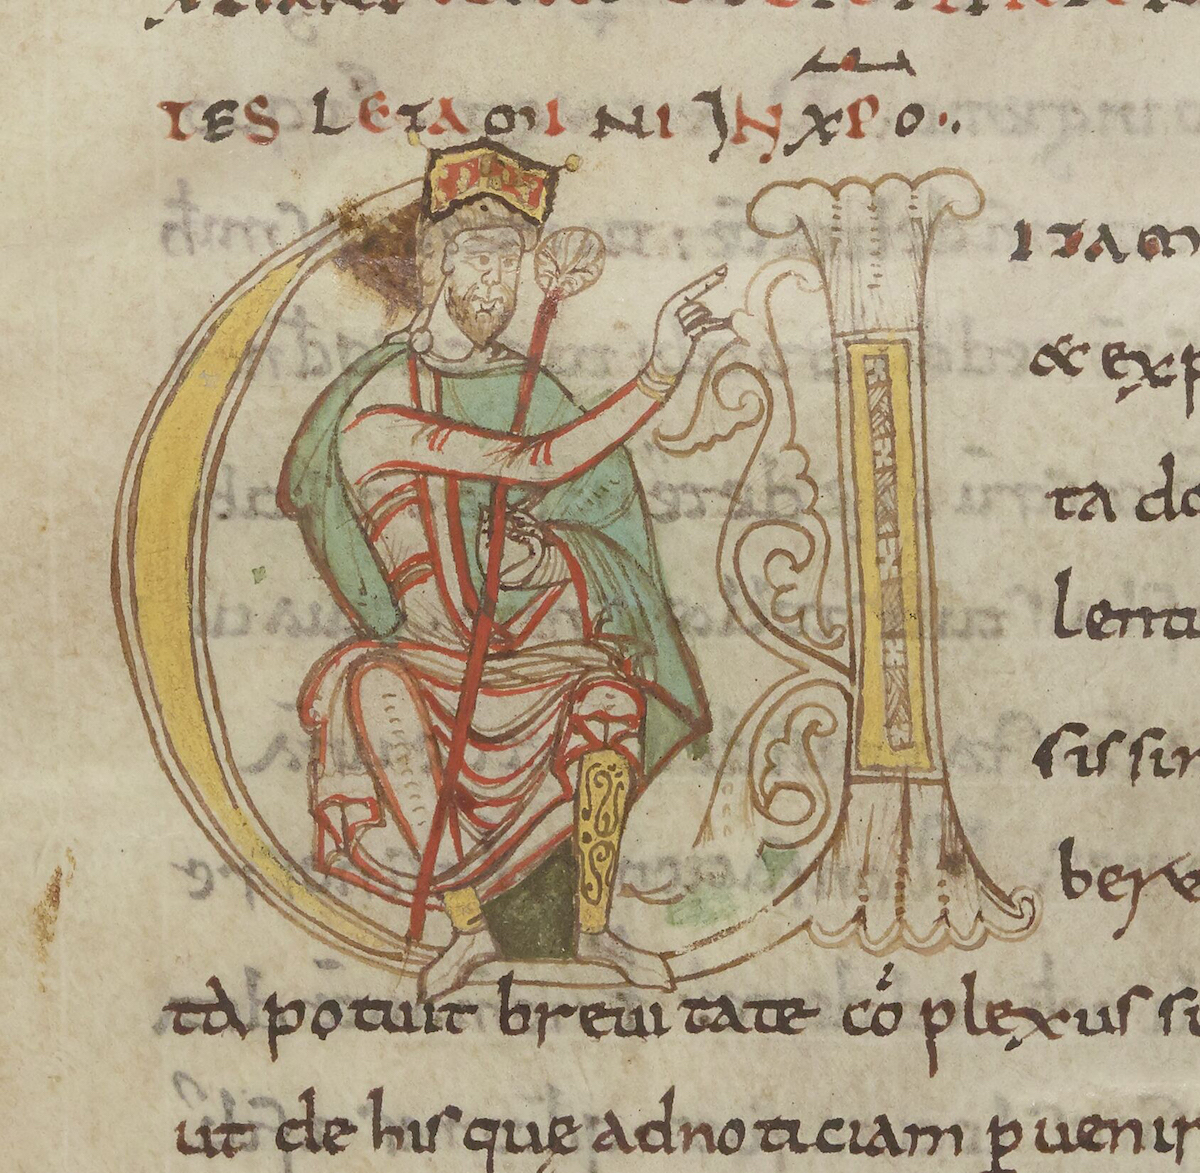 TES LETAMINI IN XPO·,
ITAM
& exp
ta do
lenti
sissim
ta potuit breuitate cō plexus su
ut de his que ad noticiam puenir